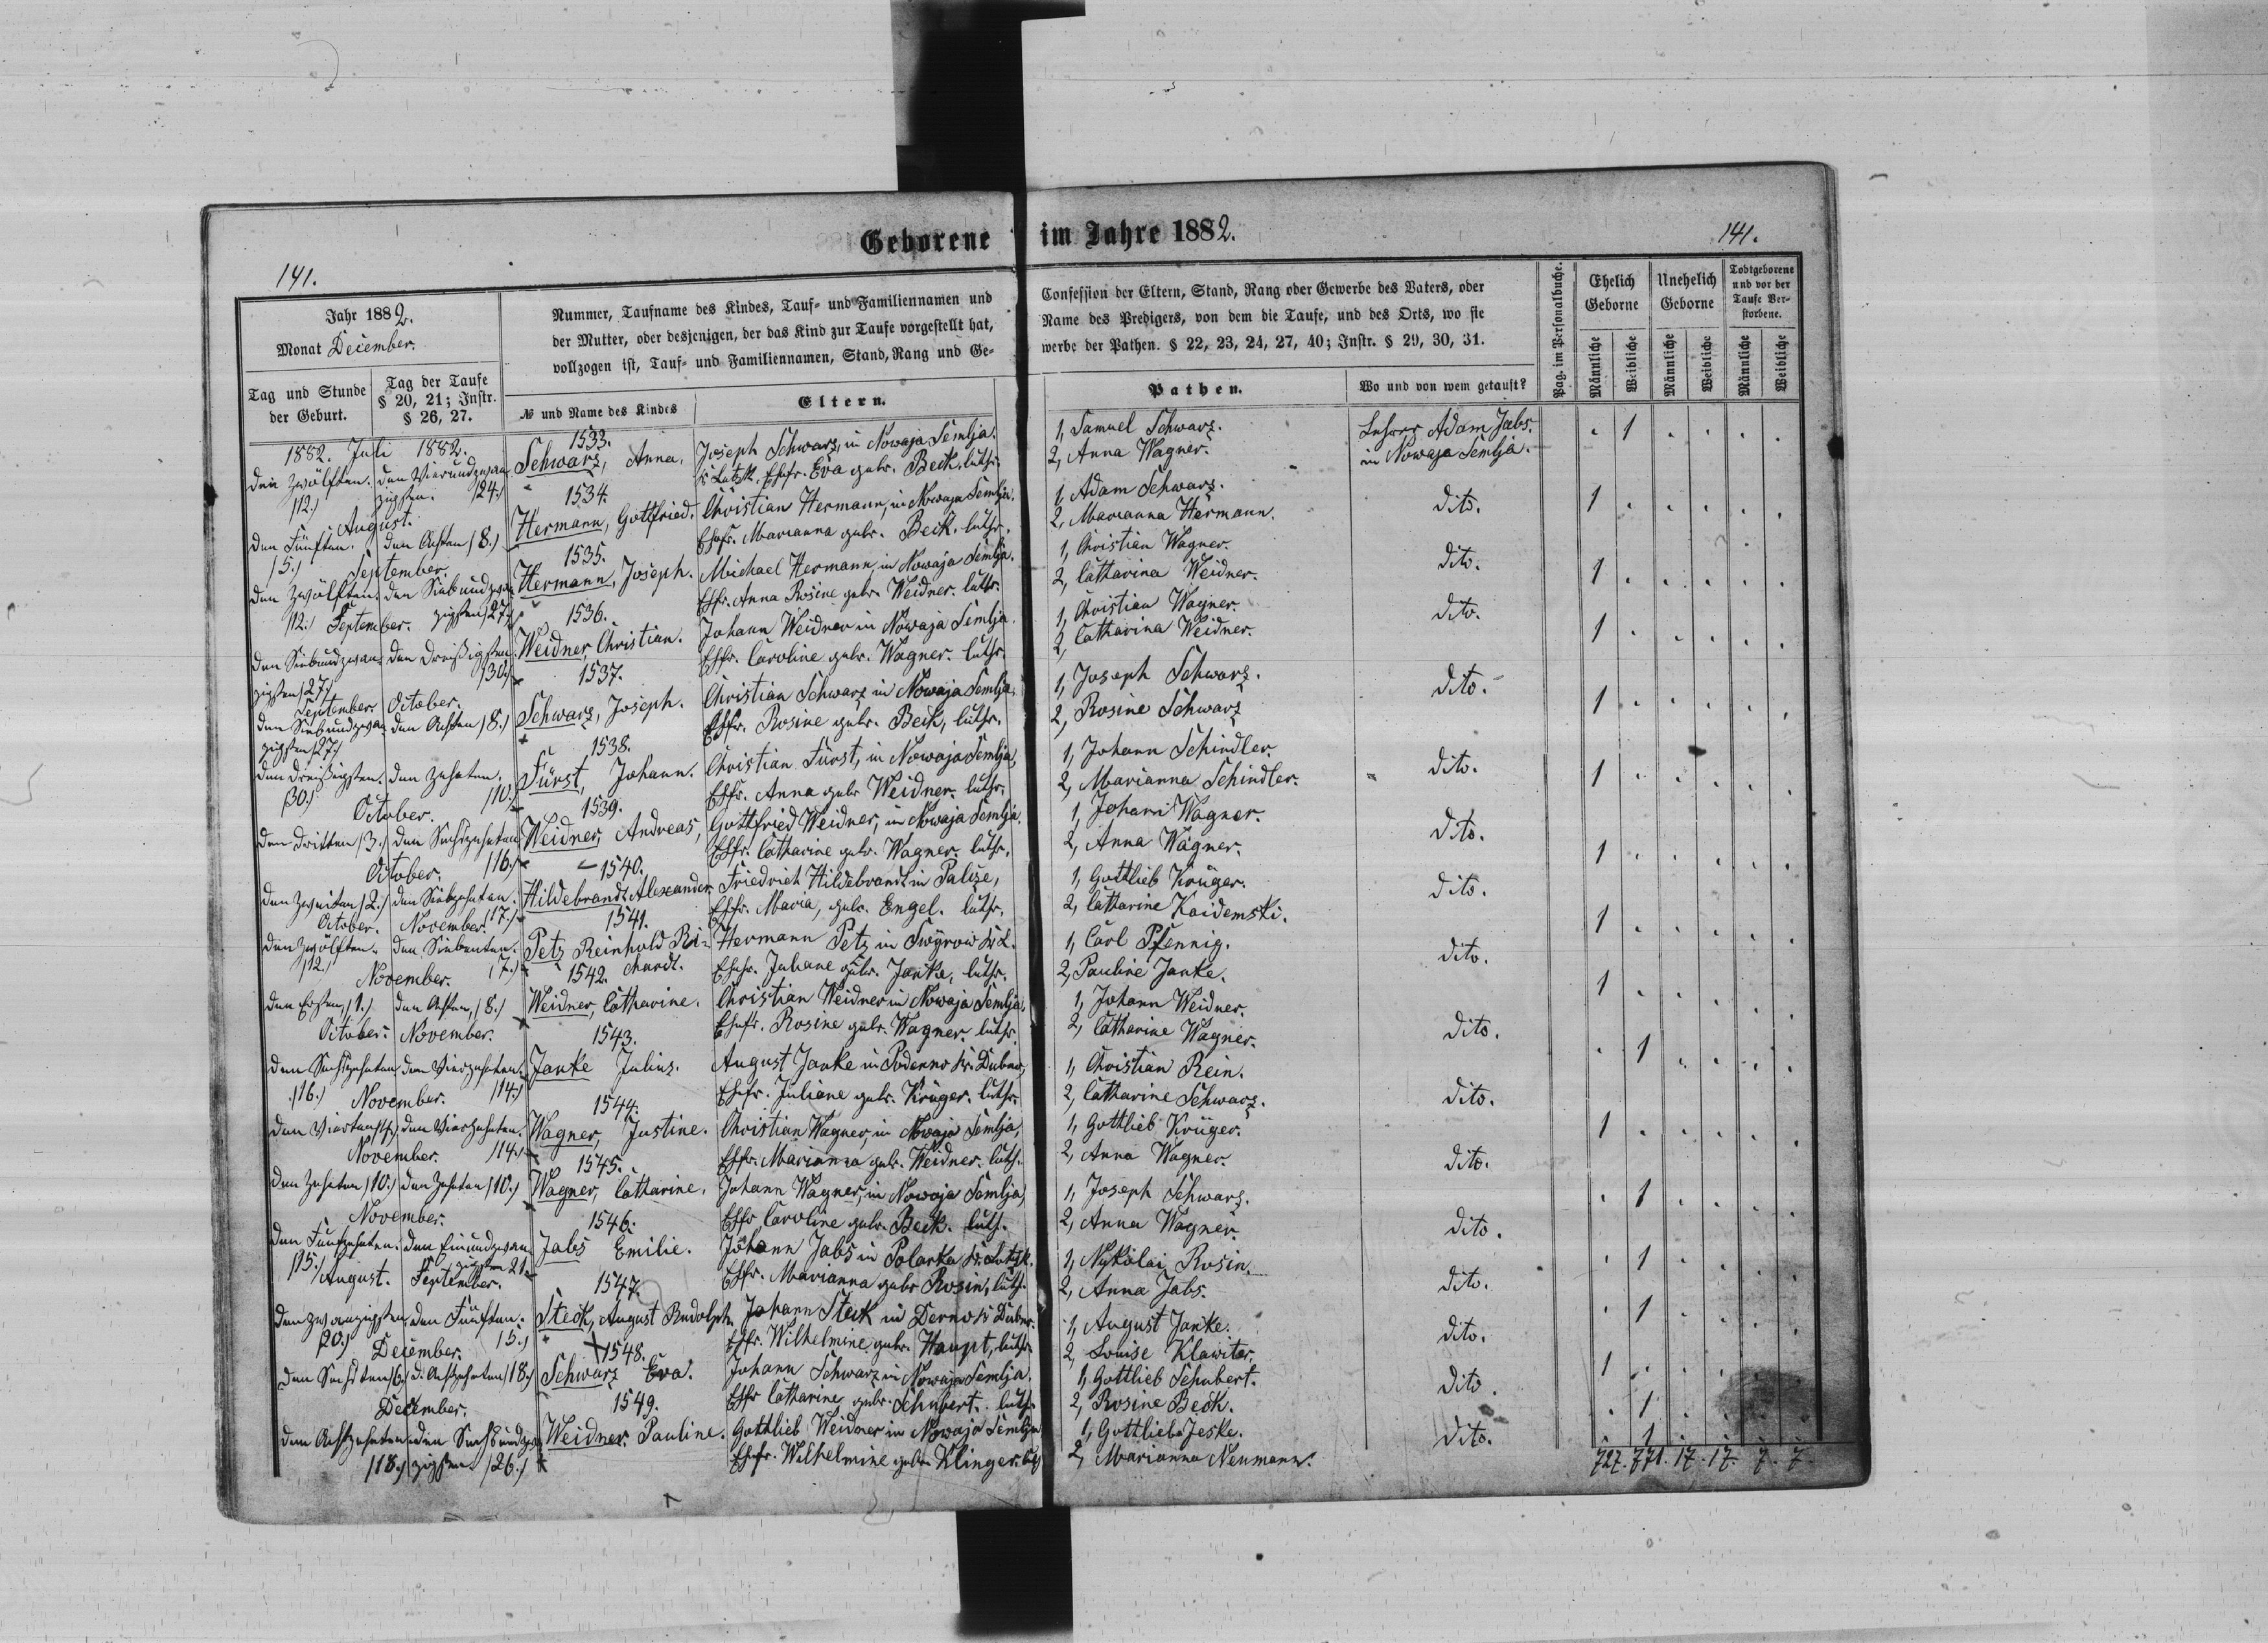 Geborene im Jahre 1882.
141.
141.
Jahr 1882.
Monat December.
Tag und Stunde der Geburt.
Tag der Taufe § 20, 21; Instr. § 26, 27.
Nummer, Taufname des Kindes, Tauf- und Familiennamen und
der Mutter, oder desjenigen, der das Kind zur Taufe vorgestellt hat,
vollzogen ist, Tauf- und Familiennamen, Stand, Rang und Ge-
№ und Name des Kindes
Eltern.
Confession der Eltern, Stand, Rang oder Gewerbe des Vaters, oder
Name des Predigers, von dem die Taufe, und des Orts, wo sie
werbe der Pathen. § 22, 23, 24, 27, 40; Instr. § 29, 30, 31.
Pathen.
Wo und von wem getauft?
Pag. im Personalbuche.
Ehelich Geborne
Unehelich Geborne
Todtgeborene und vor der Taufe Verstorbene.
Männliche
Weibliche
Männliche
Weibliche
Männliche
Weibliche
1882. Juli 1882.
den Zwölften. den Vierundzwan
/12./ zigsten. /24./
1533.
Schwarz, Anna.
Joseph Schwarz, in Nowaja Semlja.
Kr. Lutzk, Ehfr. Eva gebr. Beck, luthr.
1, Samuel Schwarz.
2, Anna Wagner.
Lehrer Adam Jabs.
in Nowaja Semlja.
1
August.
den Fünften. den Achten /8./
/5./
1534.
Hermann, Gottfried.
Christian Hermann, in Nowaja Semlja.
Ehefr. Marianna gebr. Beck. luthr.
1, Adam Schwarz.
2, Marianna Hermann.
dito.
1
September.
den Zwölften. den Siebundzwan
/12./ zigsten /27./
1535.
Hermann, Joseph.
Michael Hermann, in Nowaja Semlja.
Ehfr. Anna Rosine gebr. Weidner. luthr.
1, Christian Wagner.
2, Catharina Weidner.
dito.
1
September.
den Siebundzwan den Dreißigsten
zigsten /27./ /30./
1536.
Weidner, Christian.
Johann Weidner in Nowaja Semlja.
Ehfr. Caroline gebr. Wagner. luthr.
1, Christian Wagner.
2, Catharina Weidner.
dito.
1
September. October.
den Siebundzwan den Achten /8./
zigsten /27./
1537.
Schwarz, Joseph.
Christian Schwarz in Nowaja Semlja.
Ehfr. Rosine gebr. Beck, luthr.
1, Joseph Schwarz.
2, Rosine Schwarz
dito.
1
den Dreißigsten. den Zehnten.
/30./ /10./
1538.
Fürst, Johann.
Christian Fürst, in Nowaja Semlja,
Ehfr. Anna gebr Weidner. luthr.
1, Johann Schindler.
2, Marianna Schindler.
dito.
1
October.
den Dritten /3./ den Sechszehnten
/16./
1539.
Weidner, Andreas,
Gottfried Weidner, in Nowaja Semlja.
Ehfr. Catharine gebr. Wagner. luthr.
1, Johann Wagner.
2, Anna Wagner.
dito.
1
October.
den Zweiten /2./ den Siebzehnten.
/17./
1540.
Hildebrandt, Alexander
Friedrich Hildebrandt in Palize,
Ehfr. Maria, gebr. Engel. luthr.
1, Gottlieb Krüger.
2, Catharine Kaidemski.
dito.
1
October. November.
den Zwölften. den Siebenten.
/12./ /7./
1541.
Petz Reinhold Ri-
chardt.
Hermann Petz in Swyrow Kr L.
Ehefr. Juliane gebr. Janke, luthr.
1, Carl Pfennig.
2, Pauline Janke.
dito.
1
November.
den Ersten, /1./ den Achten, /8./
1542.
Weidner, Catharine.
Christian Weidner in Nowaja Semlja,
Ehefr. Rosine gebr. Wagner. luthr.
1, Johann Weidner.
2, Catharine Wagner.
dito.
1
October. November.
den Sechszehnten den Vierzehnten.
/16./ /14./
1543.
Janke Julius.
August Janke in Podenno Kr. Dubno,
Ehefr. Juliane gebr. Krüger. luthr.
1, Christian Rein.
2, Catharine Schwarz.
dito.
1
November.
den Vierten /4./ den Vierzehnten.
/14./
1544.
Wagner, Justine.
Christian Wagner, in Nowaja Semlja,
Ehfr. Marianna gebr. Weidner. luth.
1, Gottlieb Krüger.
2, Anna Wagner.
dito.
1
November.
den Zehnten /10./ den Zehnten /10./
1545.
Wagner, Catharine.
Johann Wagner, in Nowaja Semlja,
Ehfr Caroline gebr. Beck. luth.
1, Joseph Schwarz.
2, Anna Wagner.
dito.
1
November.
den Fünfzehnten. den Einundzwan
/15./ zigsten 21.
1546.
Jabs Emilie.
Johann Jabs in Polanka Kr. Lutzk.
Ehfr. Marianna gebr Rosin, luth.
1, Nykolai Rosin.
2, Anna Jabs.
dito.
1
August. September.
den Zwanzigsten den Fünften.
/20./ /5./
1547.
Steck, August Rudolph
Johann Steck in Derno Kr Dubno.
Ehfr. Wilhelmine gebr. Haupt, luthr.
1, August Janke.
2, Louise Klawiter,
dito.
1
December.
den Sechsten /6./ d. Achtzehnten /18./
1548.
Schwarz Eva.
Johann Schwarz in Nowaja Semlja.
Ehfr Catharine gebr. Schubert. luthr
1, Gottlieb Schubert.
2, Rosine Beck.
dito.
1
December.
den Achtzehnten den Sechsundzwan
/18./ zigsten /26./
1549.
Weidner. Pauline.
Gottlieb Weidner in Nowaja Semlja
Ehefr. Wilhelmine gebr. Klinger.
1, Gottlieb Jeske.
2, Marianna Neumann.
dito.
1
727. 771. 17. 17. 7. 7.